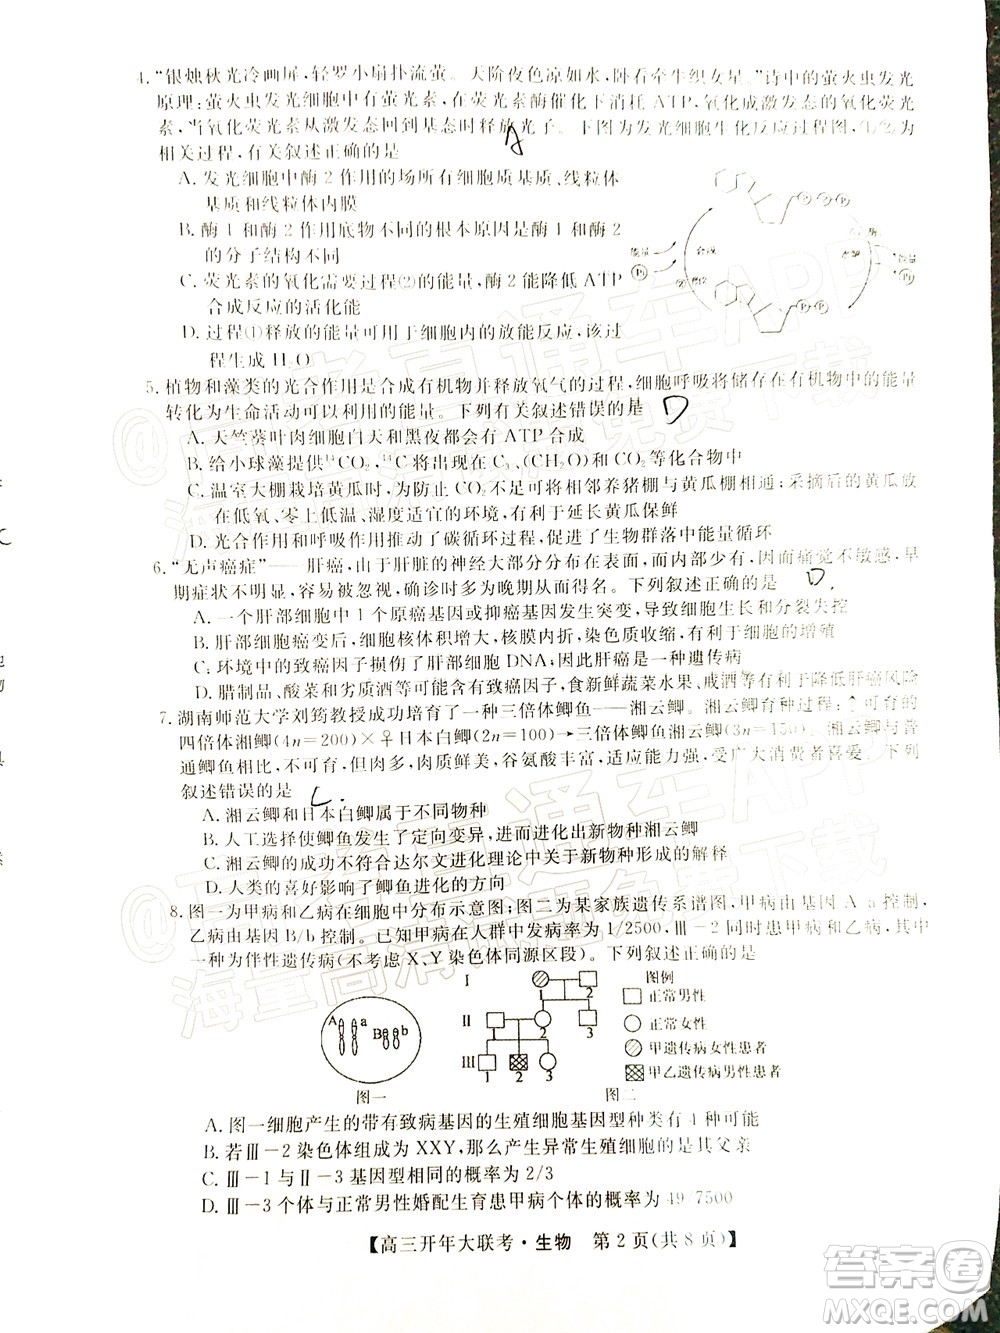 4. “银烛秋光冷画屏，轻罗小扇扑流萤。天阶夜色凉如水，卧看牵牛织女星。”诗中的萤火虫发光
原理：萤火虫发光细胞中有萤光素，在荧光素酶催化下消耗 ATP，氧化成激发态的氧化荧光
素，当氧化荧光素从激发态回到基态时释放光子。下图为发光细胞生化反应过程图，①②为
相关过程，有关叙述正确的是
A
A. 发光细胞中酶 2 作用的场所有细胞质基质、线粒体
基质和线粒体内膜
B. 酶 1 和酶 2 作用底物不同的根本原因是酶 1 和酶 2
的分子结构不同
C. 荧光素的氧化需要过程⑵的能量，酶 2 能降低 ATP
合成反应的活化能
D. 过程⑴释放的能量可用于细胞内的放能反应，该过
程生成 H₂O
能量 合成 水解 能量
5. 植物和藻类的光合作用是合成有机物并释放氧气的过程，细胞呼吸将储存在有机物中的能量
转化为生命活动可以利用的能量。下列有关叙述错误的是 D
A. 天竺葵叶肉细胞白天和黑夜都会有 ATP 合成
B. 给小球藻提供¹⁴CO₂，¹⁴C 将出现在 C₃、(CH₂O)和 CO₂ 等化合物中
C. 温室大棚栽培黄瓜时，为防止 CO₂ 不足可将相邻养猪棚与黄瓜棚相通；采摘后的黄瓜放
在低氧、零上低温、湿度适宜的环境，有利于延长黄瓜保鲜
D. 光合作用和呼吸作用推动了碳循环过程，促进了生物群落中能量循环
6. “无声癌症”——肝癌，由于肝脏的神经大部分分布在表面，内部分布少，因而痛觉不敏感，早
期症状不明显，容易被忽视，确诊时多为晚期患者。下列叙述正确的是 D.
A. 一个肝部细胞中 1 个原癌基因或抑癌基因发生突变，导致细胞生长和分裂失控
B. 肝部细胞癌变后，细胞核体积增大，核膜内折，染色质收缩，有利于细胞的增殖
C. 环境中的致癌因子损伤了肝部细胞 DNA，所以肝癌是一种遗传病
D. 腊制品、酸菜和烈酒等可能含有致癌因子，食新鲜蔬菜水果、戒酒等有利于降低肝癌风险
7. 湖南师范大学刘筠教授成功培育了一种三倍体鲫鱼——湘云鲫。湘云鲫育种过程：♂可育的
四倍体湘鲫(4n=200)×♀日本白鲫(2n=100)→三倍体鲫鱼湘云鲫(3n=150)。湘云鲫与普
通鲫鱼相比，不可育、肉多刺少，肉质鲜美、谷氨酸丰富、适应能力强，受广大消费者喜爱。下列
叙述错误的是 C.
A. 湘云鲫和日本白鲫属于不同物种
B. 人工选择使鲫鱼发生了定向变异，进而进化出新物种湘云鲫
C. 湘云鲫的成功不符合达尔文进化理论中关于新物种形成的解释
D. 人类的喜好影响了鲫鱼进化的方向
8. 图一为甲病和乙病在细胞中分布示意图；图二为某家族遗传系谱图，甲病由基因 A/a 控制，
乙病由基因 B/b 控制。已知甲病在人群中发病率为 1/2500，Ⅲ－2 同时患甲病和乙病，其中
一种为伴性遗传病(不考虑 X、Y 染色体同源区段)。下列叙述正确的是
A a B b
图一
Ⅰ 1 2
Ⅱ 1 2 3
Ⅲ 1 2 3
图二
图例
正常男性
正常女性
甲遗传病女性患者
甲乙遗传病男性患者
A. 图一细胞产生的带有致病基因的生殖细胞基因型种类共有 4 种可能
B. 若Ⅲ－2 染色体组成为 XXY，那么产生异常生殖细胞的是其父亲
C. Ⅲ－1 与Ⅱ－3 基因型相同的概率为 2/3
D. Ⅲ－3 个体与正常男性婚配生育患甲病个体的概率为 49/7500
【高三开年大联考·生物 第 2 页(共 8 页)】
答案圈
MXQE.COM